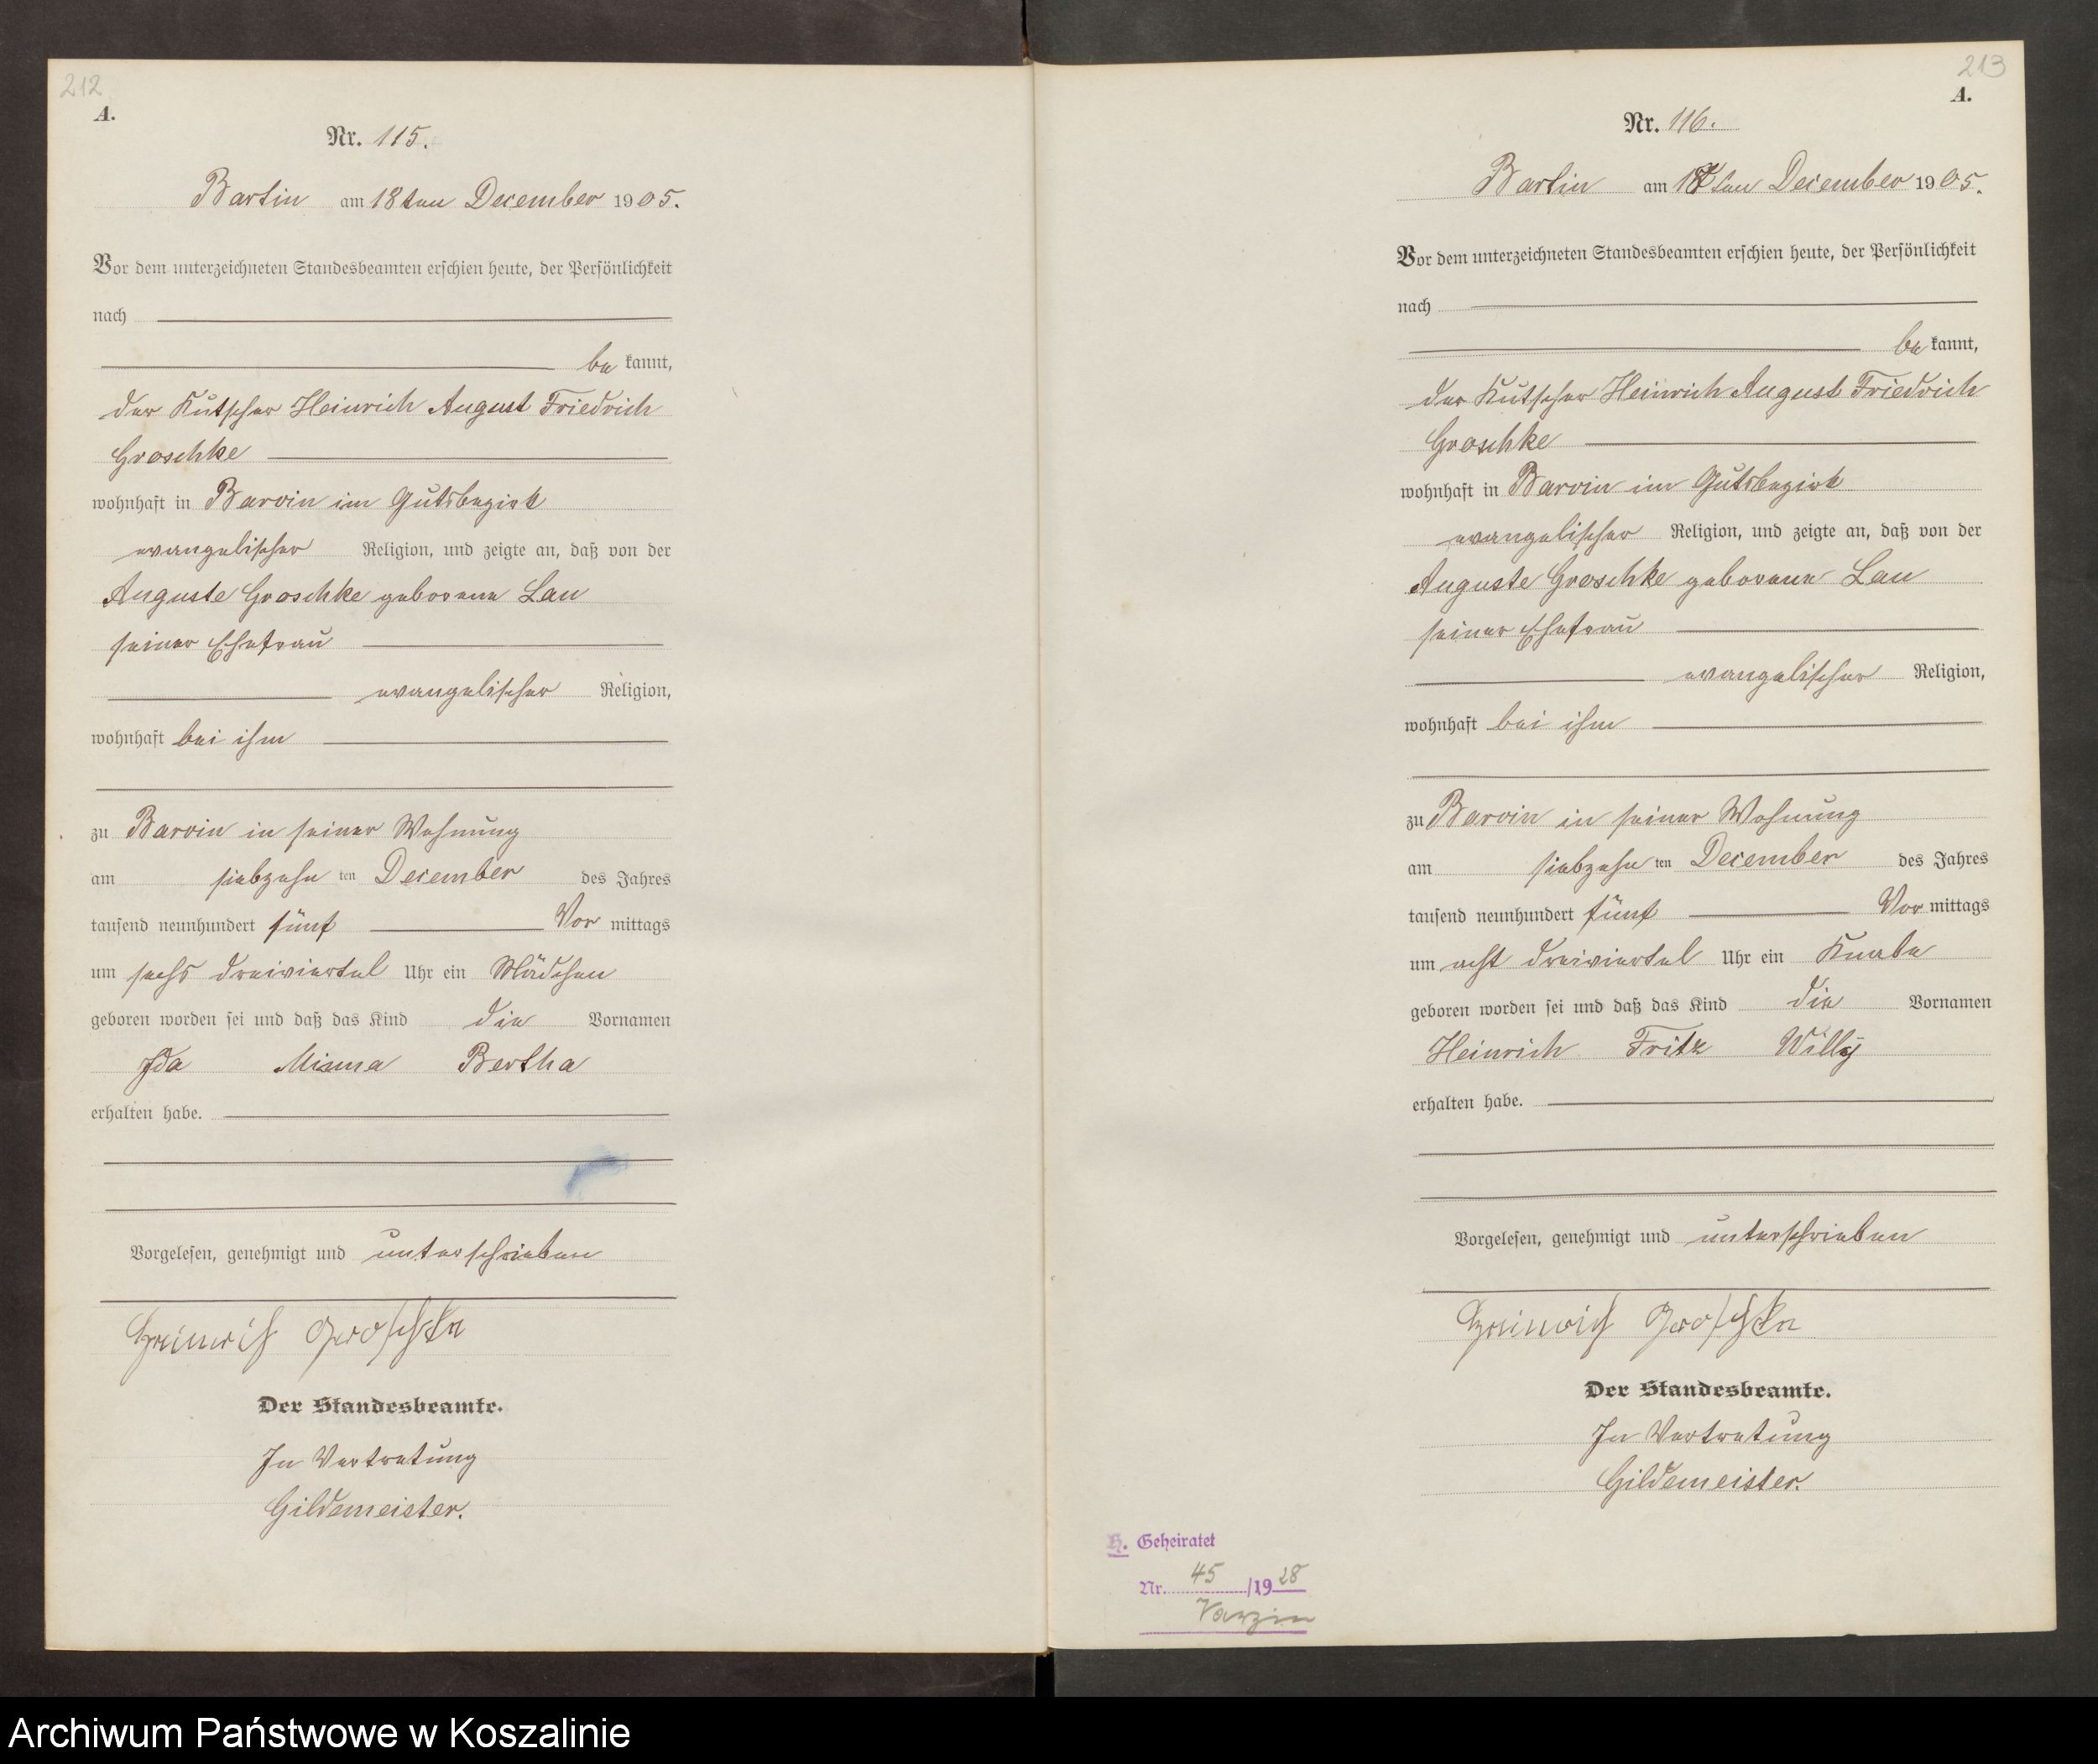 212
A.
Nr. 115.
Bartin am 18ten December 1905.
Vor dem unterzeichneten Standesbeamten erschien heute, der Persönlichkeit
nach
be kannt,
der Kutscher Heinrich August Friedrich
Groschke
wohnhaft in Barvin im Gutsbezirk
evangelischer Religion, und zeigte an, daß von der
Auguste Groschke geborene Lau
seiner Ehefrau
evangelischer Religion,
wohnhaft bei ihm
zu Barvin in seiner Wohnung
am siebzehn ten December des Jahres
tausend neunhundert fünf Vor mittags
um sechs dreiviertel Uhr ein Mädchen
geboren worden sei und daß das Kind die Vornamen
Ida Minna Bertha
erhalten habe.
Vorgelesen, genehmigt und unterschrieben
Heinrich Groschke
Der Standesbeamte.
In Vertretung
Gildemeister.
213
A.
Nr. 116.
Bartin am 18ten December 1905.
Vor dem unterzeichneten Standesbeamten erschien heute, der Persönlichkeit
nach
be kannt,
der Kutscher Heinrich August Friedrich
Groschke
wohnhaft in Barvin im Gutsbezirk
evangelischer Religion, und zeigte an, daß von der
Auguste Groschke geborene Lau
seiner Ehefrau
evangelischer Religion,
wohnhaft bei ihm
zu Barvin in seiner Wohnung
am siebzehn ten December des Jahres
tausend neunhundert fünf Vor mittags
um acht dreiviertel Uhr ein Knabe
geboren worden sei und daß das Kind die Vornamen
Heinrich Fritz Willy
erhalten habe.
Vorgelesen, genehmigt und unterschrieben
Heinrich Groschke
Der Standesbeamte.
In Vertretung
Gildemeister.
H. Geheiratet
Nr. 45 /1928
Varzin
Archiwum Państwowe w Koszalinie